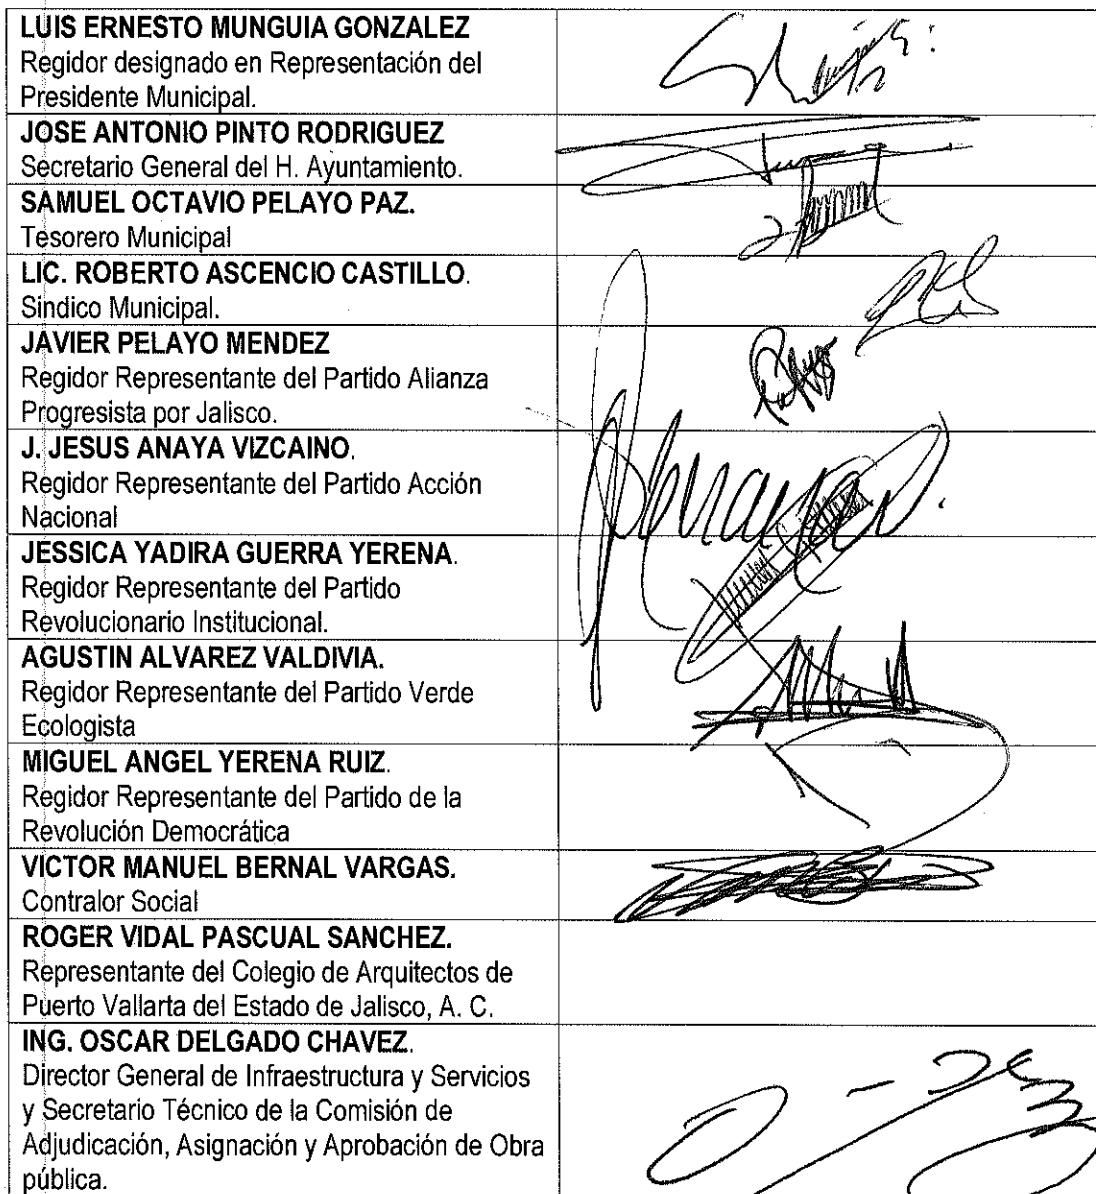 LUIS ERNESTO MUNGUIA GONZALEZ
Regidor designado en Representación del
Presidente Municipal.
JOSE ANTONIO PINTO RODRIGUEZ
Secretario General del H. Ayuntamiento.
SAMUEL OCTAVIO PELAYO PAZ.
Tesorero Municipal
LIC. ROBERTO ASCENCIO CASTILLO.
Sindico Municipal.
JAVIER PELAYO MENDEZ
Regidor Representante del Partido Alianza
Progresista por Jalisco.
J. JESUS ANAYA VIZCAINO.
Regidor Representante del Partido Acción
Nacional
JESSICA YADIRA GUERRA YERENA.
Regidor Representante del Partido
Revolucionario Institucional.
AGUSTIN ALVAREZ VALDIVIA.
Regidor Representante del Partido Verde
Ecologista
MIGUEL ANGEL YERENA RUIZ.
Regidor Representante del Partido de la
Revolución Democrática
VICTOR MANUEL BERNAL VARGAS.
Contralor Social
ROGER VIDAL PASCUAL SANCHEZ.
Representante del Colegio de Arquitectos de
Puerto Vallarta del Estado de Jalisco, A. C.
ING. OSCAR DELGADO CHAVEZ.
Director General de Infraestructura y Servicios
y Secretario Técnico de la Comisión de
Adjudicación, Asignación y Aprobación de Obra
pública.